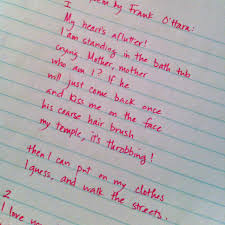 poem by Frank O'Hara:
I
My heart's aflutter!
I am standing in the bath tub
crying. Mother, mother
who am I? If he
will just come back once
and kiss me on the face
his coarse hair brush
my temple, it's throbbing!
then I can put on my clothes
I guess, and walk the streets.
2
I love you